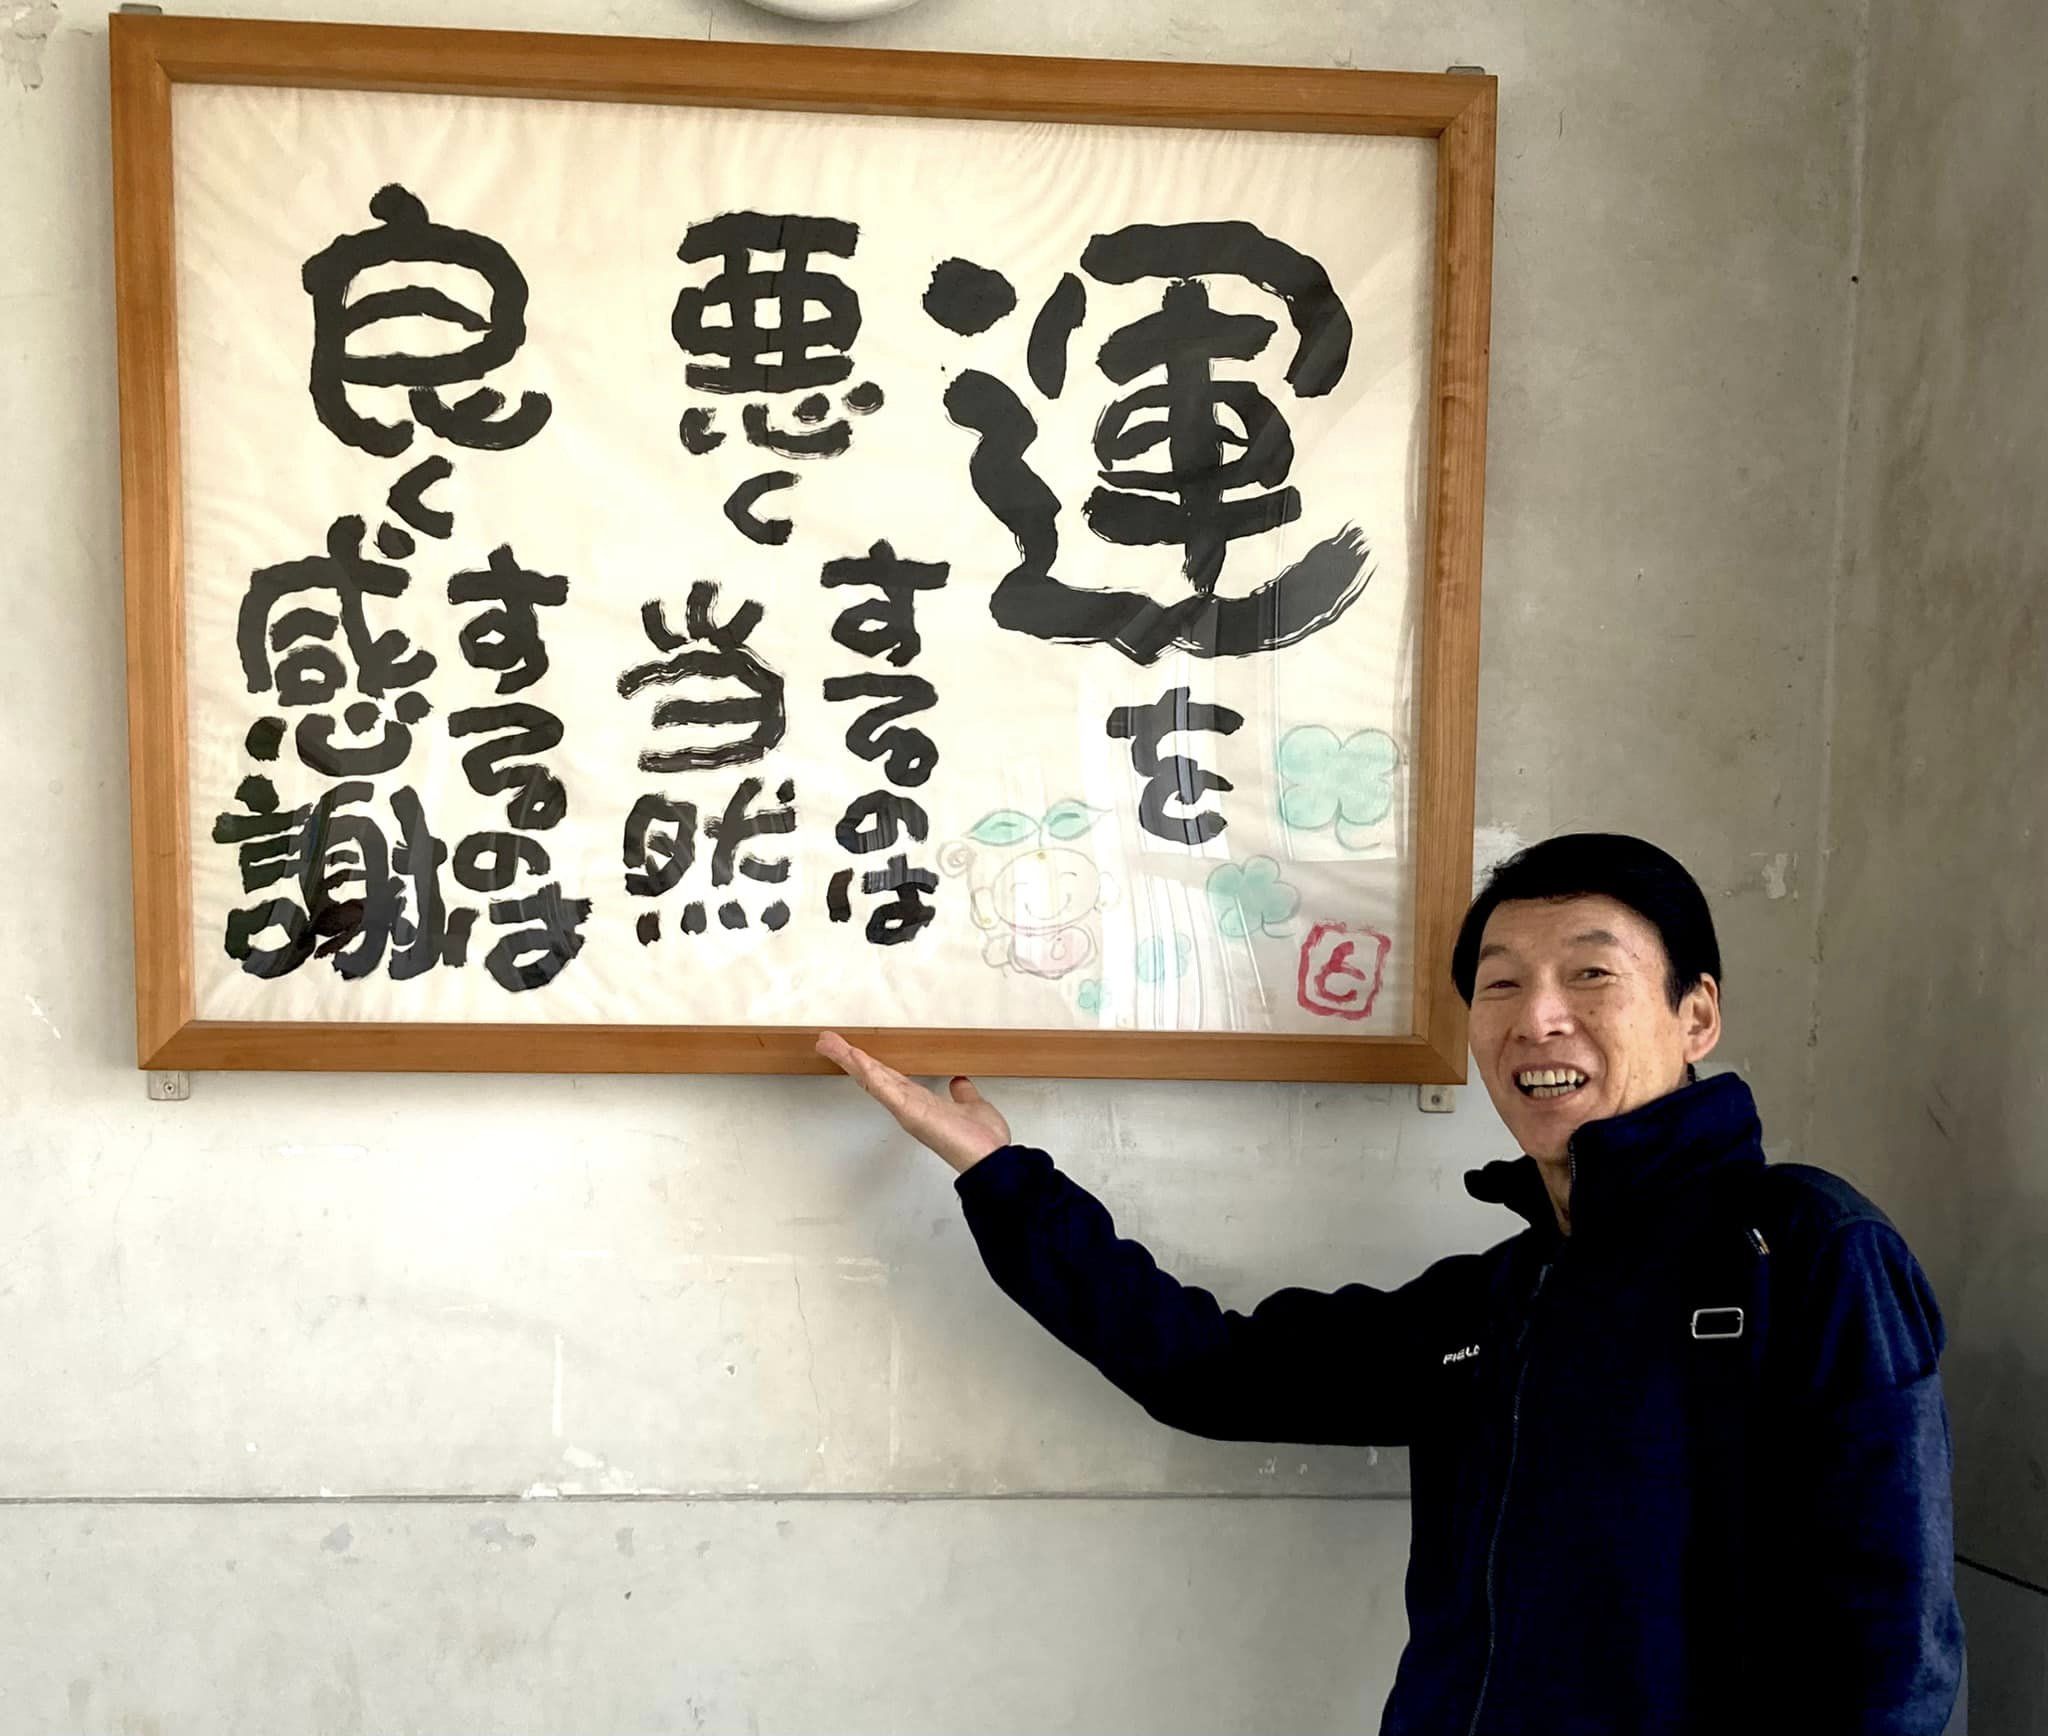 運を
悪く
するのは
当然
良く
するのは
感謝
と
FIELD